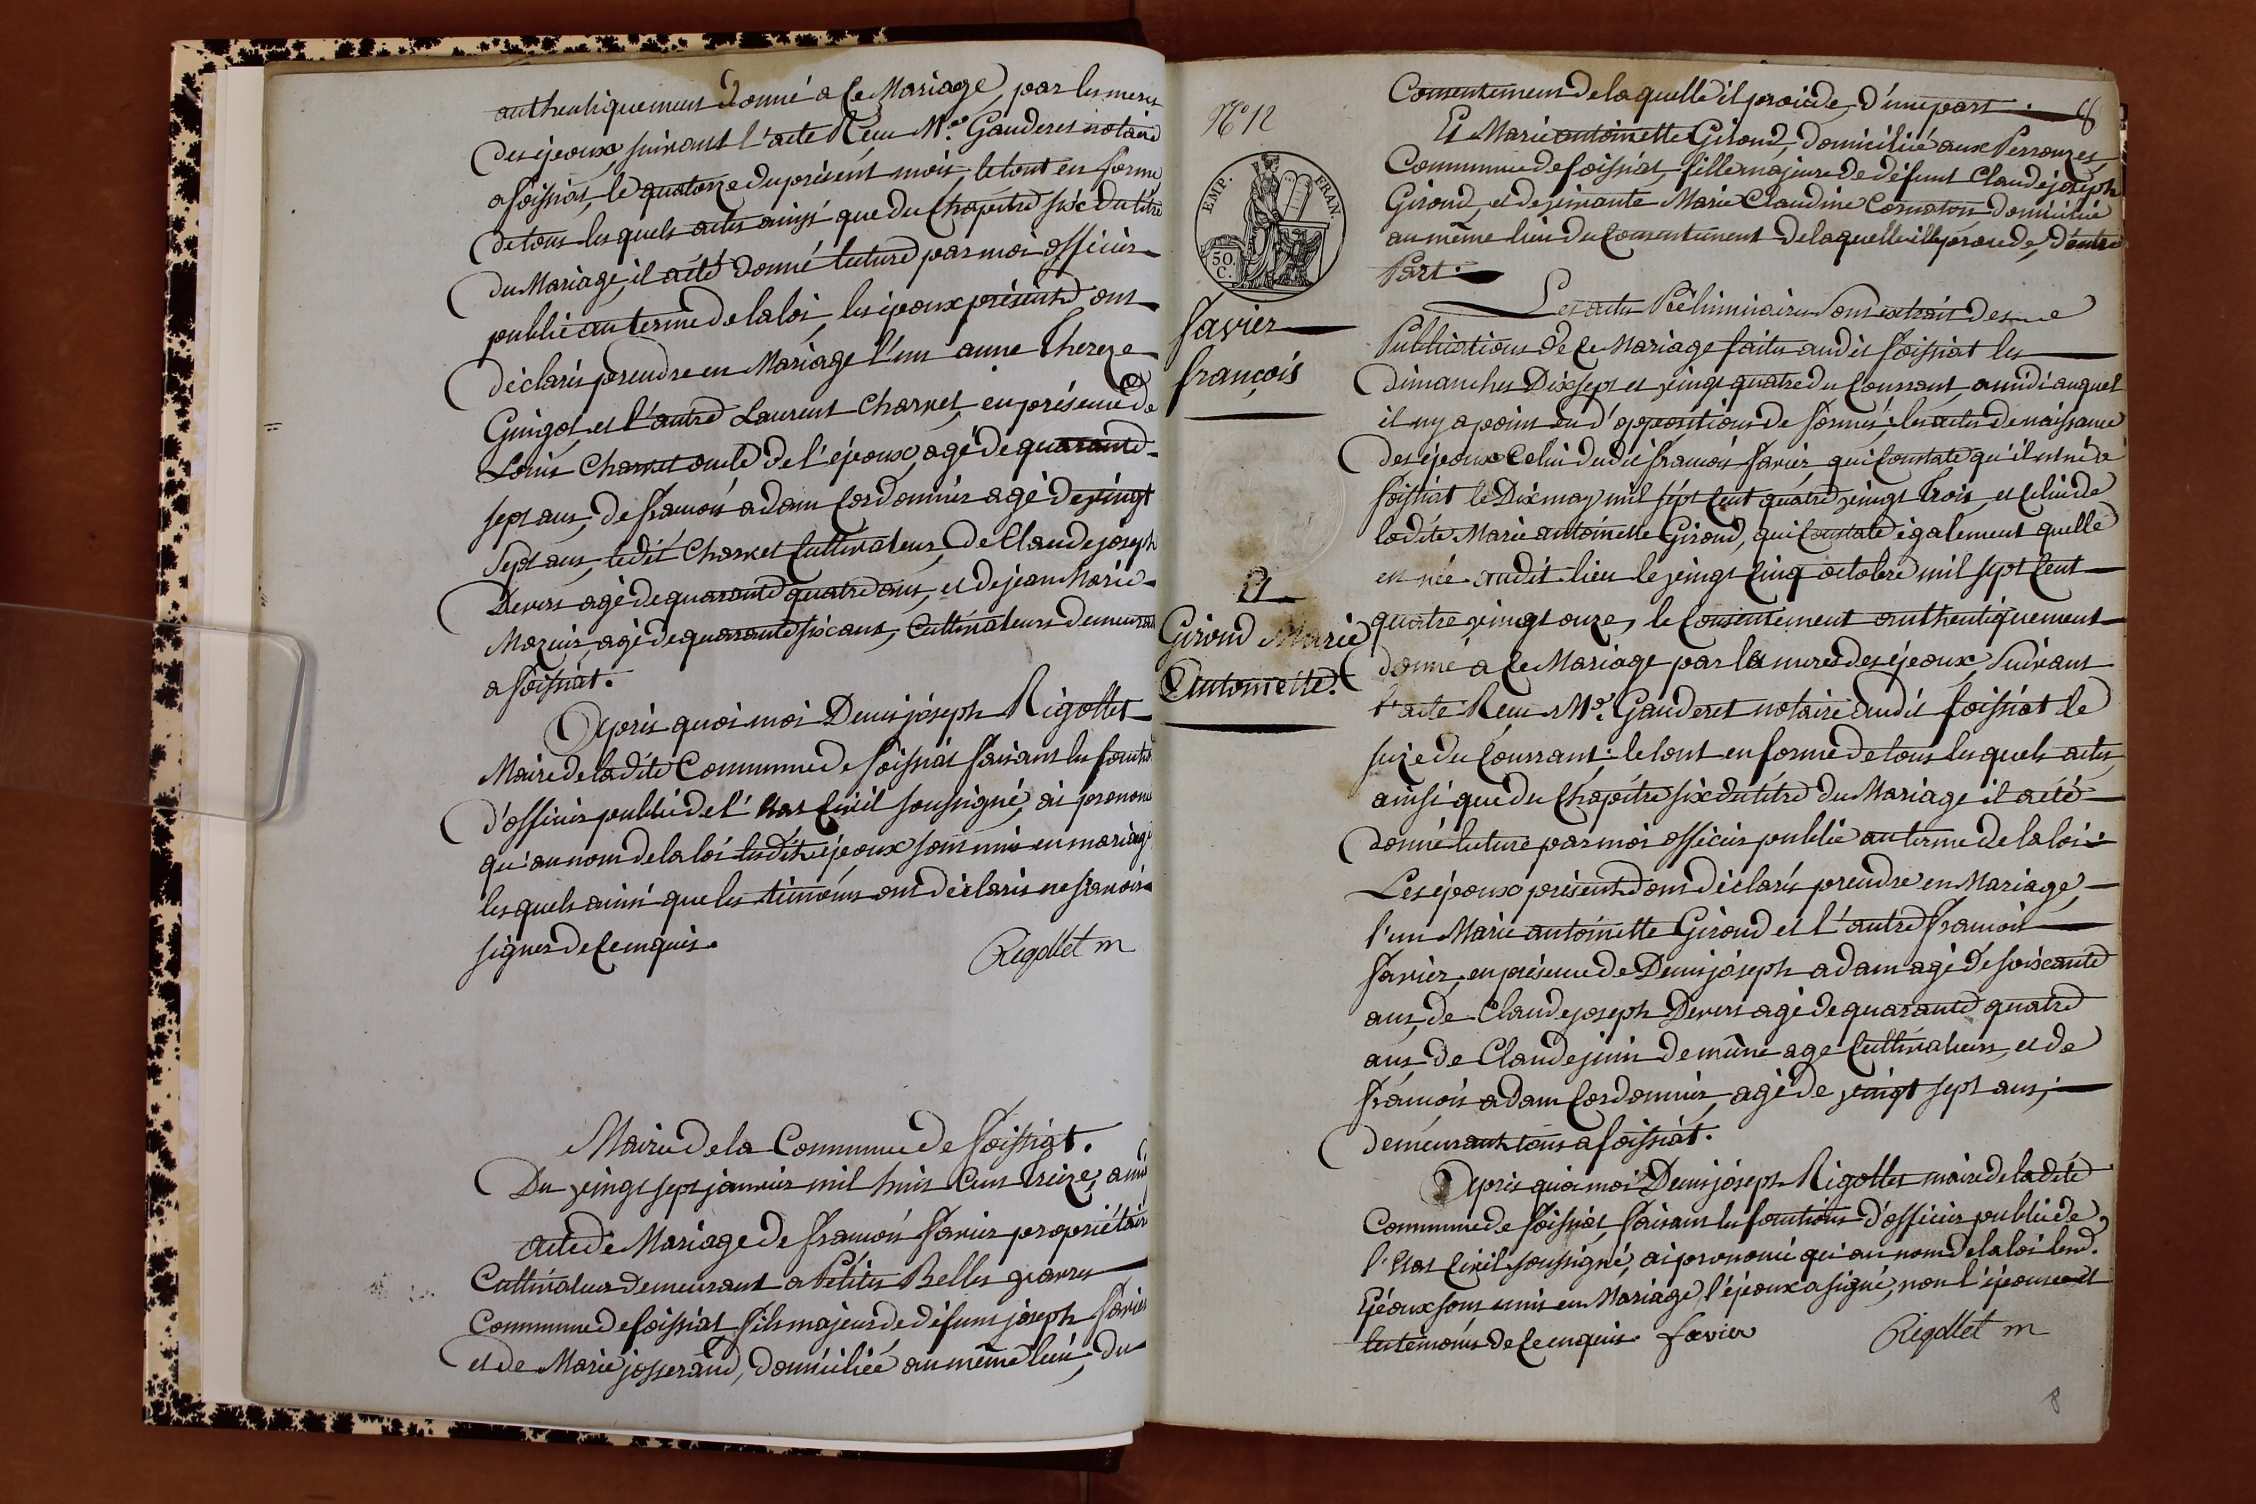 authentiquement donné a ce Mariage, par les meres
des époux, suivant l'acte Reçu Me. Gauderet notaire
a foissiat, le quatorze du présent mois, le tout en forme
de tous les quels actes ainsi que du Chapitre six du titre
du Mariage, il a été donné lecture par moi officier
public au terme de la loi, les époux présents ont
déclaré prendre en Mariage l'un anne Thereze
Guigot, et l'autre Laurent Charnet, en présence de
Louis Charnet oncle de l'époux, agé de quarante
sept ans, de françois adam Cordonnier agé de vingt
sept ans, ledit Charnet Cultivateur, de Claude joseph
Devers agé de quarante quatre ans, et de jean Marie
Mazuir agé de quarante six ans, Cultivateurs demeurant
a foissiat.
Après quoi moi Denis joseph Rigollet
Maire de la dite Commune de foissiat faisant les fonctions
d'officier public de l'Etat Civil soussigné, ai prononcé
qu'au nom de la loi lesdits époux sont unis en mariage
les quels ainsi que les témoins ont déclaré ne sçavoir
signer de ce enquis.
Rigollet m
Mairie de la Commune de foissiat.
Du vingt sept janvier mil huit Cent treize, a midi
Acte de Mariage de françois favier propriétaire
Cultivateur demeurant a Petites Belles
Commune de foissiat fils majeur de défunt joseph favier
et de Marie josserand, domiciliée au même lieu, du
8
N° 12
EMP. FRAN.
50. C.
favier
françois
Et
Giroud Marie
Antoinette.
Consentement de laquelle il procède, d'une part.
Et Marie antoinette Giroud, domiciliée aux Perrouzes
Commune de foissiat, fille majeure de défunt Claude joseph
Giroud, et de vivante Marie Claudine Cornaton domiciliée
au même lieu du Consentement de laquelle elle procede, d'autre
Part.
Les actes Préliminaires sont extrait des
Publications de ce Mariage faites audit foissiat les
dimanches Dix sept et vingt quatre du Courrant, a midi auquel
il n'y a point eu d'oppositions de formés; les actes de naissance
des époux Celui dudit françois favier qui Constate qu'il est né à
foissiat le Dix may mil sept Cent quatre vingt trois, et Celui de
ladite Marie antoinette Giroud, qui Constate également quelle
est née audit lieu le vingt Cinq octobre mil sept Cent
quatre vingt onze, le Consentement authentiquement
donné a ce Mariage par les meres des époux, suivant
l'acte Reçu Me. Gauderet notaire audit foissiat le
seize du Courrant; le tout en forme de tous les quels actes
ainsi que du Chapitre six du titre du Mariage il a été
donné lecture par moi officier public au terme de la loi:
Les époux présents ont déclaré prendre en Mariage,
l'un Marie antoinette Giroud et l'autre françois
favier, en présence de Denis joseph adam agé de soixante
ans, de Claude joseph Devers agé de quarante quatre
ans, de Claude de même age Cultivateurs, et de
françois adam Cordonnier, agé de vingt sept ans,
demeurant tous a foissiat.
Après quoi moi Denis joseph Rigollet maire de la dite
Commune de foissiat, faisant les fonctions d'officier public de
l'Etat Civil soussigné, ai prononcé qu'au nom de la loi lesd.
Epoux sont unis en Mariage, l'époux a signé, non l'épouse et
les témoins de ce enquis. favier
Rigollet m
8